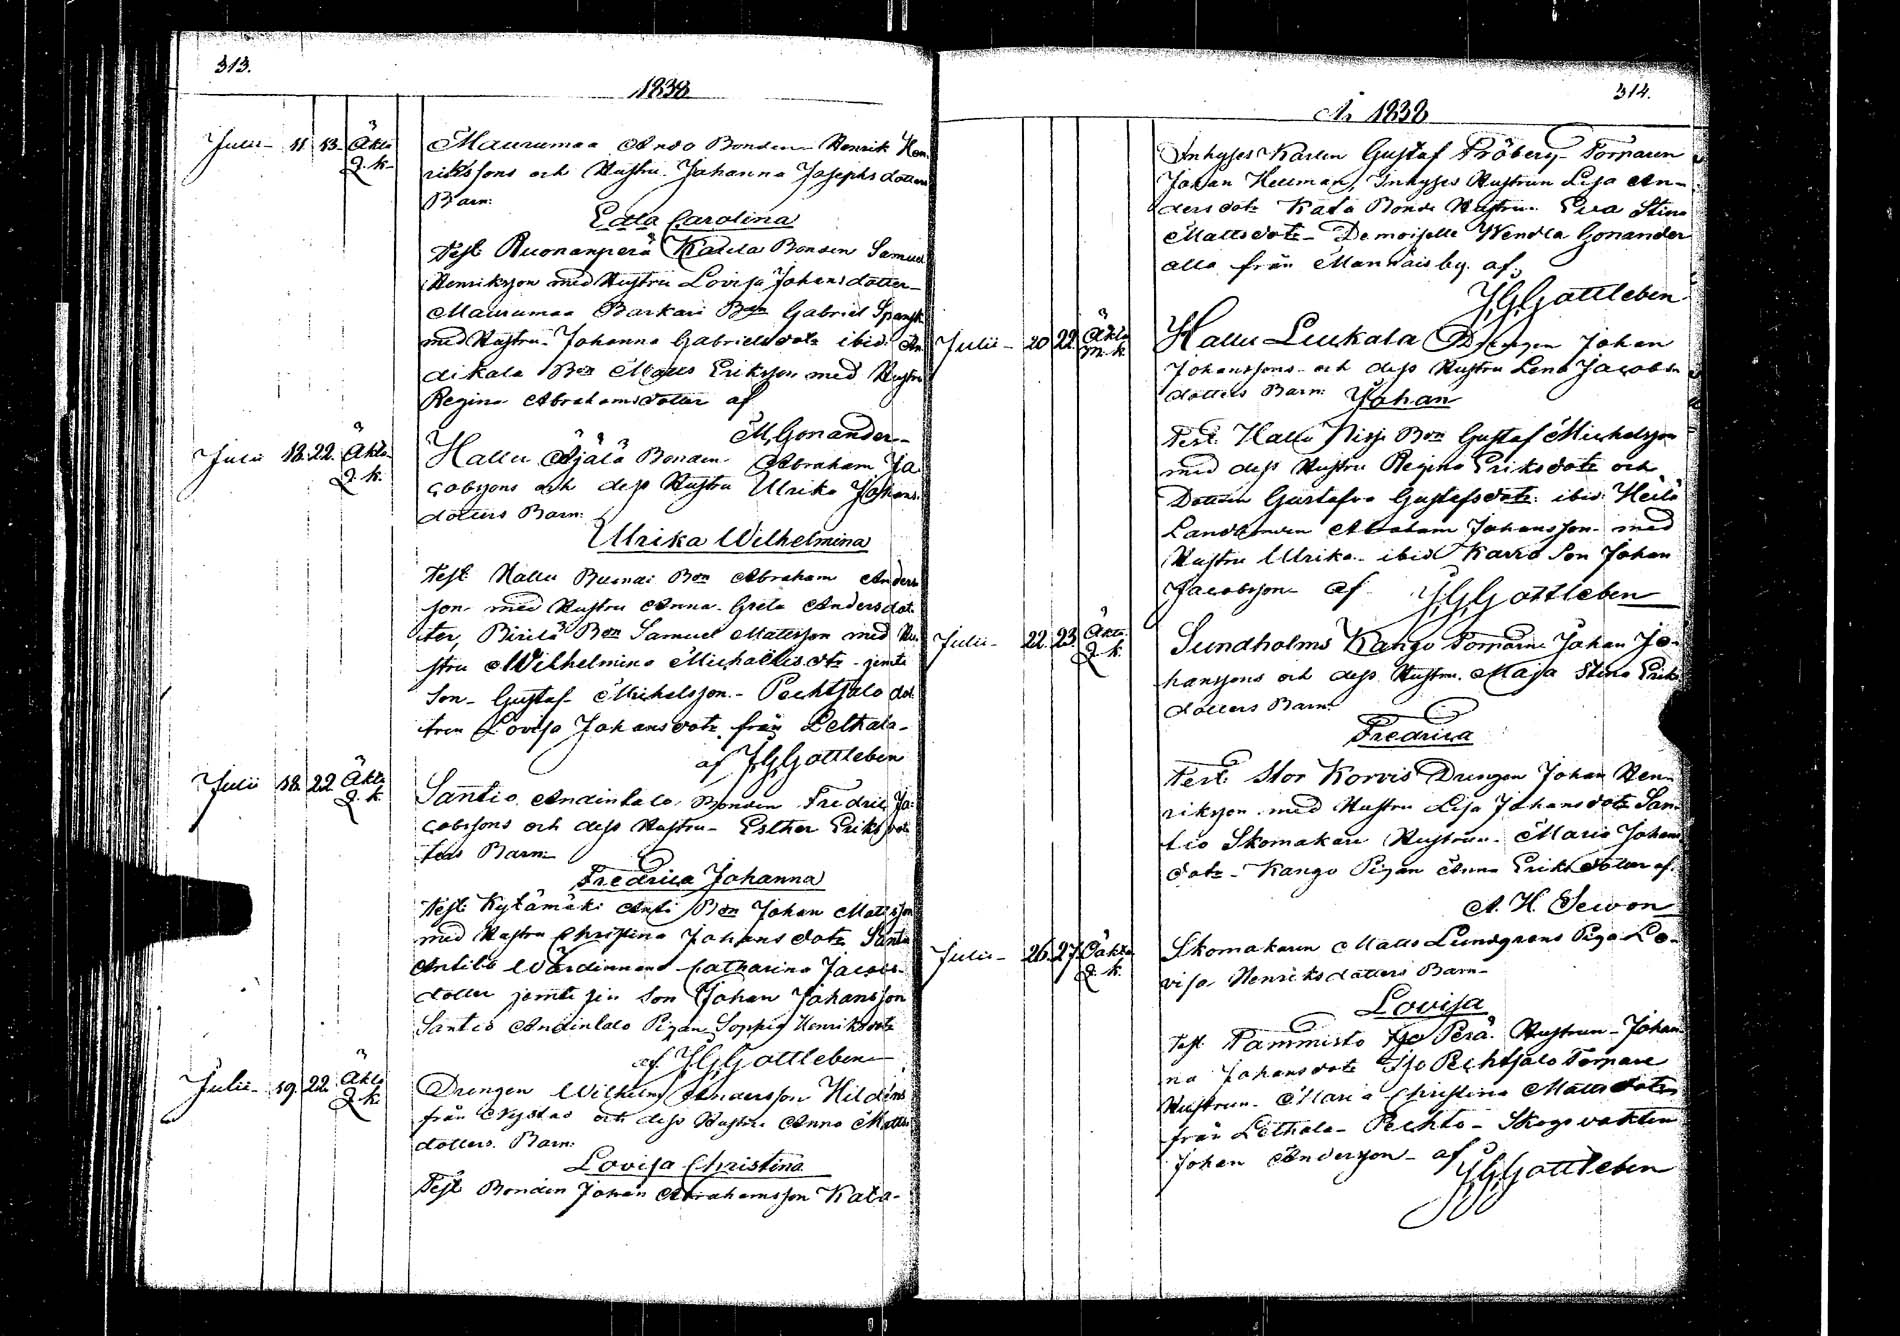 313.
1838
Julii 11 13 Äkta Maurumaa Anso Bonden Henrik Hen-
Q. k. rikssons och Hustru Johanna Josephsdotters
Barn:
Edla Carolina
Test Ruonanperä Kalila Bonden Samuel
Henriksson med Hustru Lovisa Johansdotter
Maurumaa Barkari Bon Gabriel
med Hustru Johanna Gabrielsdotr ibid. An
dikala Bon Matts Eriksson med Hustru
Regina Abrahamsdotter af
M. Gonander
Julii 18. 22. Äkta Hallu Äjälä Bonden Abraham Ja
Q. k. cobssons och dess Hustru Ulrika Johans
dotters Barn:
Ulrika Wilhelmina
Test Hallu Buenai Bon Abraham Anders
son med Hustru Anna Greta Andersdot
ter, Birilä Bon Samuel Mattsson med Hu
stru Wilhelmina Michaelsdotr jemte
Son Gustaf Michelsson. Pechtsalo dot
tren Lovisa Johansdotr från Lethala
af J. G. Gottleben
Julii 18. 22 Äkta Santio Andintalo Bonden Fredric Ja
Q. k. cobssons och dess Hustru Esther Eriksdot
ters Barn:
Fredrica Johanna
Test Kylämäki Anti Bon Johan Matsson
med Hustru Christina Johansdotr Santio
Antila Wärdinnan Catharina Jacobs
dotter jemte sin Son Johan Johansson
Santio Andintalo Pigan Sophia Henriksdotr
af J. G. Gottleben
Julii 19. 22. Äkta Drengen Wilhelm Andersson Hildéns
Q. k. från Nystad och dess Hustru Anna Matts
dotters Barn:
Lovisa Christina
Test Bonden Johan Abrahamsson Kata-
314.
År 1838
Inhyses Karlen Gustaf Fröberg Torparen
Johan Hellman, Inhyses Hustrun Lisa An-
dersdotr Kata Bonde Hustrun Eva Stina
Mattsdotr Demoiselle Wendla Gonander
alla från Mannais by. af.
J. G. Gottleben
Julii 20 22. Äkta Hallu Leukala Drengen Johan
m. k. Johanssons och dess Hustru Lena Jacobs
dotters Barn: Johan
Test Hallu Nisse Bon Gustaf Michelsson
med dess Hustru Regina Eriksdotr och
Dottren Gustafva Gustafsdotr ibid: Heilä
Landbonden Abraham Johansson med
Hustru Ulrika ibid Karro Son Johan
Jacobsson af J. G. Gottleben
Julii 22. 23. Äkta Sundholms Kango Torparen Johan Jo-
Q. k. hanssons och dess Hustru Maja Stina Eriks
dotters Barn:
Fredrica
Test: Stor Korvis Drengen Johan Hen-
riksson med Hustru Lisa Johansdotr San-
tio Skomakare Hustrun Maria Johans
dotr Kango Pigan Anna Eriksdotter af.
A. H. Sewon
Julii 26. 27. Oäkta Skomakaren Matts Lundgrens Piga Lo-
Q. k. visa Henriksdotters Barn
Lovisa
Test Tammisto Iso Perä Hustrun Johan-
na Johansdotr Iso Pechtsalo Torpare
Hustrun Maria Christina Mattsdotr
från Lethala Pechto Skogsvakten
Johan Andersson af
J. G. Gottleben